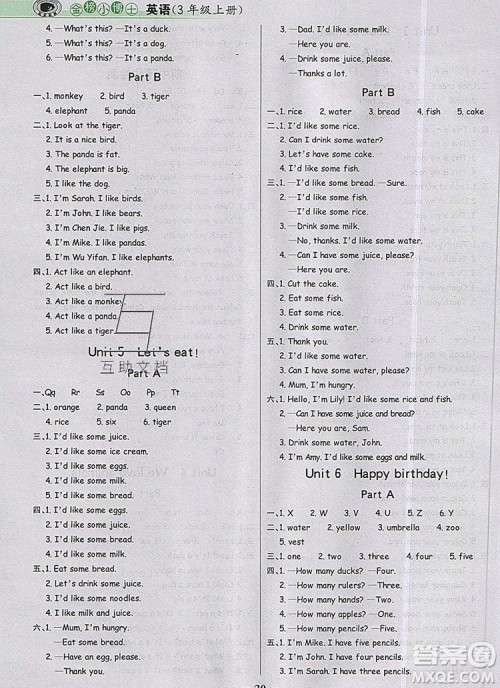 金榜小博士 英语(3年级上册)
4. —What's this? —It's a duck.
5. —What's this? —It's a panda.
Part B
一、1. monkey 2. bird 3. tiger
4. elephant 5. panda
二、1. Look at the tiger.
2. It is a nice bird.
3. The panda is fat.
4. The elephant is big.
5. I like the dog.
三、1. I'm Sarah. I like birds.
2. I'm John. I like bears.
3. I'm Chen Jie. I like pigs.
4. I'm Mike. I like pandas.
5. I'm Wu Yifan. I like elephants.
四、1. Act like an elephant.
2. Act like a bird.
3. Act like a monkey.
4. Act like a panda.
5. Act like a tiger.
Unit 5 Let's eat!
互助文档
Part A
一、Qq Rr Ss Oo Pp Tt
二、1. orange 2. panda 3. queen
4. rice 5. six 6. tiger
三、1. I'd like some juice.
2. I'd like some bread.
3. I'd like some eggs.
4. I'd like some milk.
5. I'd like some bread.
四、1. I'd like some eggs.
2. I'd like some juice.
3. I'd like some bread.
4. I'd like some milk.
五、1. Eat some bread.
2. Let's drink some juice.
3. I'd like some noodles.
4. I like milk and juice.
六、1. —Mum, I'm hungry.
—Eat some bread.
2. —Good morning!
—Have an egg, please!
3. —Dad, I'd like some milk.
—Here you are.
4. —Drink some juice, please.
—Thanks a lot.
Part B
一、1. rice 2. water 3. bread 4. fish 5. cake
二、1. I'd like some rice.
2. Can I drink some water?
3. Let's have some bread.
4. I'd like some fish.
三、1. —I'd like some bread. —Sure.
2. I'd like some fish.
3. Eat some rice.
4. —Drink some milk.
—No, thanks. I'd like some water.
5. —Can I have some juice, please?
—Here you are.
四、1. Cut the cake.
2. Eat some fish.
3. Drink some milk.
4. Drink some juice.
五、1. Thank you.
2. I'd like some rice.
3. I'd like some water.
4. Mum, I'm hungry.
六、1. Hello, I'm Lily! I'd like some rice and fish.
2. —Can I have some bread and juice?
—Here you are.
3. Eat some fish, John.
4. I'm Amy. I'd like some cake and milk.
Unit 6 Happy birthday!
Part A
一、1. X 2. W 3. V 4. U 5. Z 6. Y
二、1. water 2. yellow 3. umbrella 4. zoo
5. vest
三、1. one 2. two 3. three 4. four 5. five
四、1. —How many ducks? —Four.
2. —How many rulers? —Three.
3. —How many hands? —Two.
4. —How many apples? —One.
5. —How many pencils? —Five.
五、1. I'm Mike. I have five pencils.
2. I'm John. I have four pencils.
3. I'm Sarah. I have three pencils.
答案圈
MXQE.COM